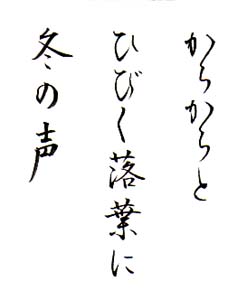 からからと
ひびく落葉に
冬の声